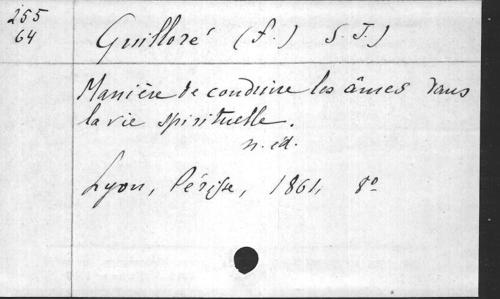 255
64
Guilloré (F.) S.J.)
Manière de conduire les âmes dans
la vie spirituelle.
n. ed.
Lyon, Périsse, 1861, 8º